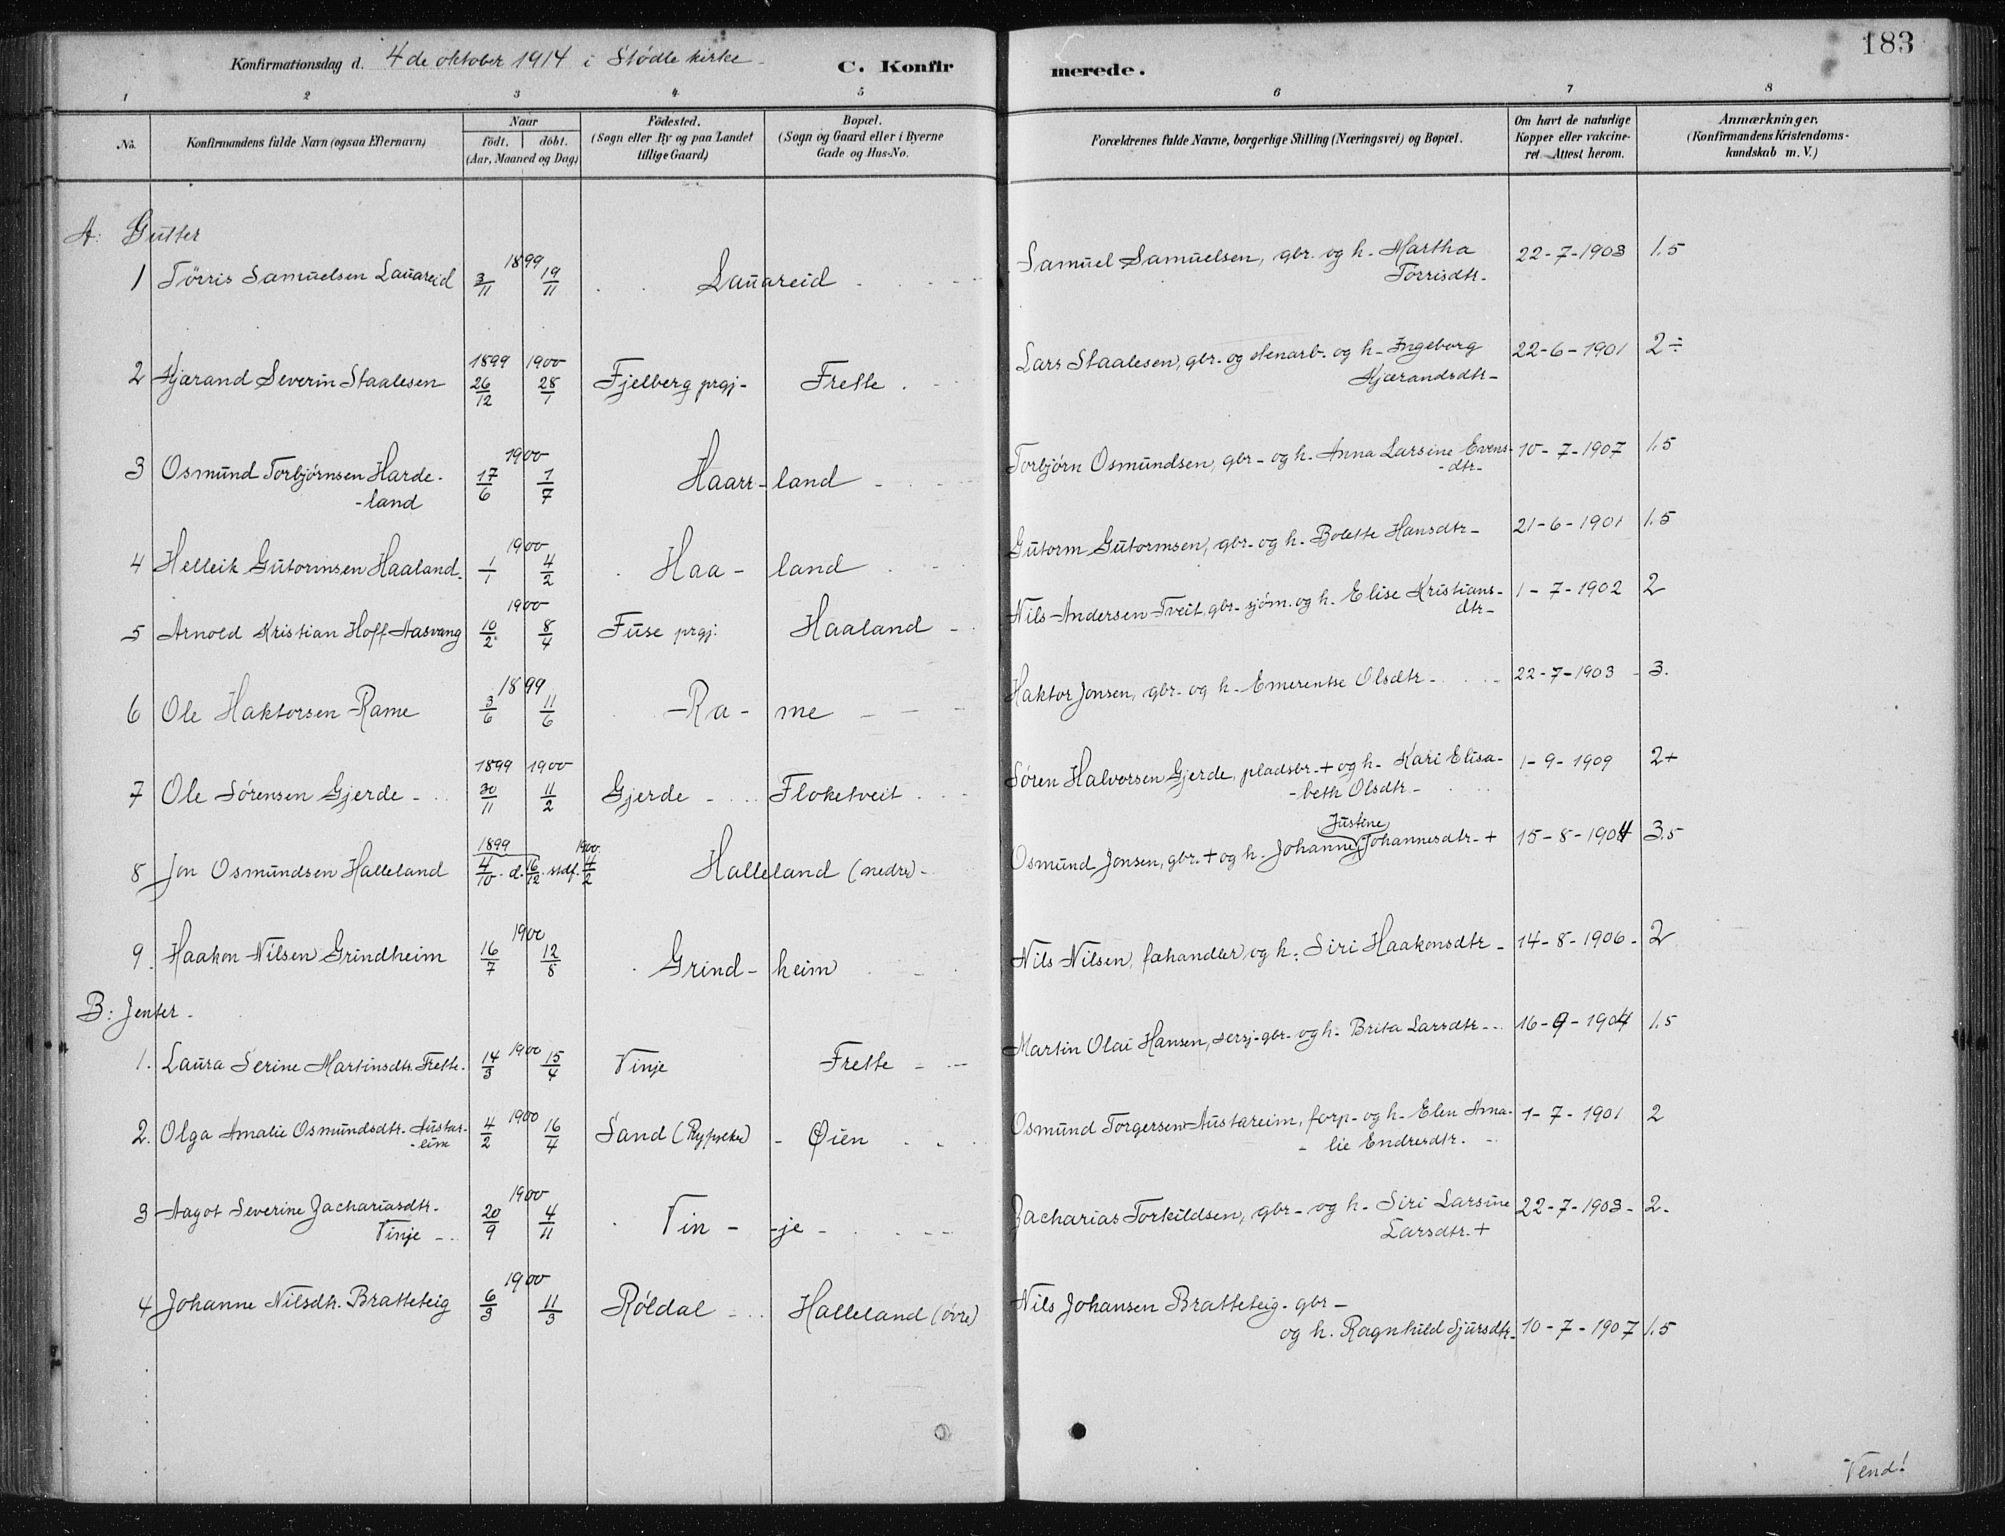 183
Konfirmationsdag d. 4 de oktober 1914 i Stødle kirke
C. Konfir merede.
1 2 3 4 5 6 7 8
No. Konfirmandens fulde Navn (ogsaa Efternavn) Naar født. døbt. (Aar, Maaned og Dag) Födested. (Sogn eller By og paa Landet tillige Gaard) Bopæl. (Sogn og Gaard eller i Byerne Gade og Hus-No. Forældrenes fulde Navne, borgerlige Stilling (Næringsvei) og Bopæl. Om havt de naturlige Kopper eller vakcineret. Attest herom. Anmærkninger. (Konfirmandens Kristendomskundskab m. V.)
A: Gutter
1 Tørris Samuelsen Lauareid 1899 3/11 19/11 Lauareid Samuel Samuelsen, gbr. og h. Martha Tørrisdtr. 22-7-1903 1.5
2 Kjærand Severin Staalesen 1899 26/12 1900 28/1 Fjelberg prgj. Frette Lars Staalesen, gbr. og stenarb. og h. Ingeborg Kjærandsdtr. 22-6-1901 2÷
3 Osmund Torbjørnsen Harde-land 1900 17/6 1/7 Haarr-land Torbjørn Osmundsen, gbr. og h. Anna Larsine Evens-dtr. 10-7-1907 1.5
4 Helleik Gutormsen Haaland 1900 1/1 4/2 Haa-land Gutorm Gutormsen, gbr. og h. Bolette Hansdtr. 21-6-1901 1.5
5 Arnold Kristian Hoff Aasvang 1900 10/2 8/4 Fuse prgj: Haaland Nils Andersen Tveit, gbr. sjøm. og h. Elise Kristians-dtr. 1-7-1902 2
6 Ole Haktorsen Rame 1899 3/6 11/6 Ra-me Haktor Jonsen, gbr. og h. Emerentse Olsdtr. 22-7-1903 3.
7 Ole Sørensen Gjerde 1899 30/11 1900 11/2 Gjerde Floketveit Søren Halvorsen Gjerde, pladsbr. + og h. Kari Elisa-beth Olsdtr. 1-9-1909 2+
8 Jon Osmundsen Halleland 1899 4/10 d. 16/12 stdf. 1900 4/2 Halleland (nedre) Osmund Jonsen, gbr. + og h. Johanne Justine Johannesdtr. + 15-8-1904 3.5
9. Haakon Nilsen Grindheim 1900 16/7 12/8 Grind-heim Nils Nilsen, fæhandler og h. Siri Haakonsdtr. 14-8-1906 2
B: Jenter.
1. Laura Serine Martinsdtr. Frette. 1900 14/3 15/4 Vinje Frette Martin Olai Hansen, sersj. gbr. og h. Brita Larsdtr. 16-9-1904 1.5
2. Olga Amalie Osmundsdtr. Austar-eim 1900 4/2 16/4 Sand Øien Osmund Torgersen Austareim, forp. og h. Elen Ama-lie Endresdtr. 1-7-1901 2
3 Aagot Severine Zachariasdtr. Vinje 1900 20/9 4/11 Vin-je Zacharias Torkildsen, gbr. og h. Siri Larsine Larsdtr. + 22-7-1903 2.
4 Johanne Nilsdtr. Bratteteig 1900 6/3 11/3 Røldal Halleland (øvre) Nils Johansen Bratteteig. gbr. og h. Ragnhild Sjursdtr. 10-7-1907 1.5
Vend!